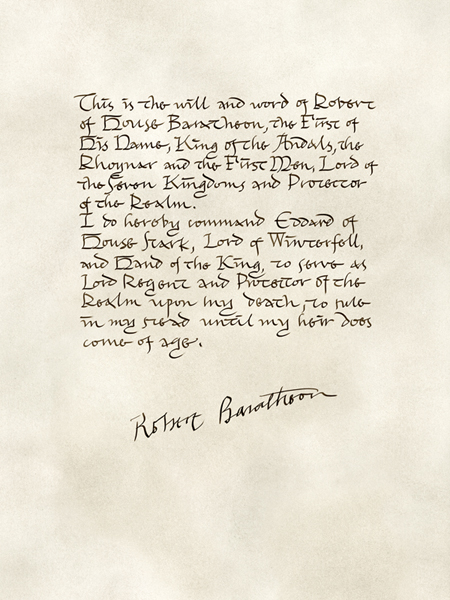 This is the will and word of Robert
of House Baratheon, the First of
His Name, King of the Andals, the
Rhoynar and the First Men, Lord of
the Seven Kingdoms and Protector
of the Realm.
I do hereby command Eddard of
House Stark, Lord of Winterfell,
and Hand of the King, to serve as
Lord Regent and Protector of the
Realm upon my death, to rule
in my stead until my heir does
come of age.
Robert Baratheon